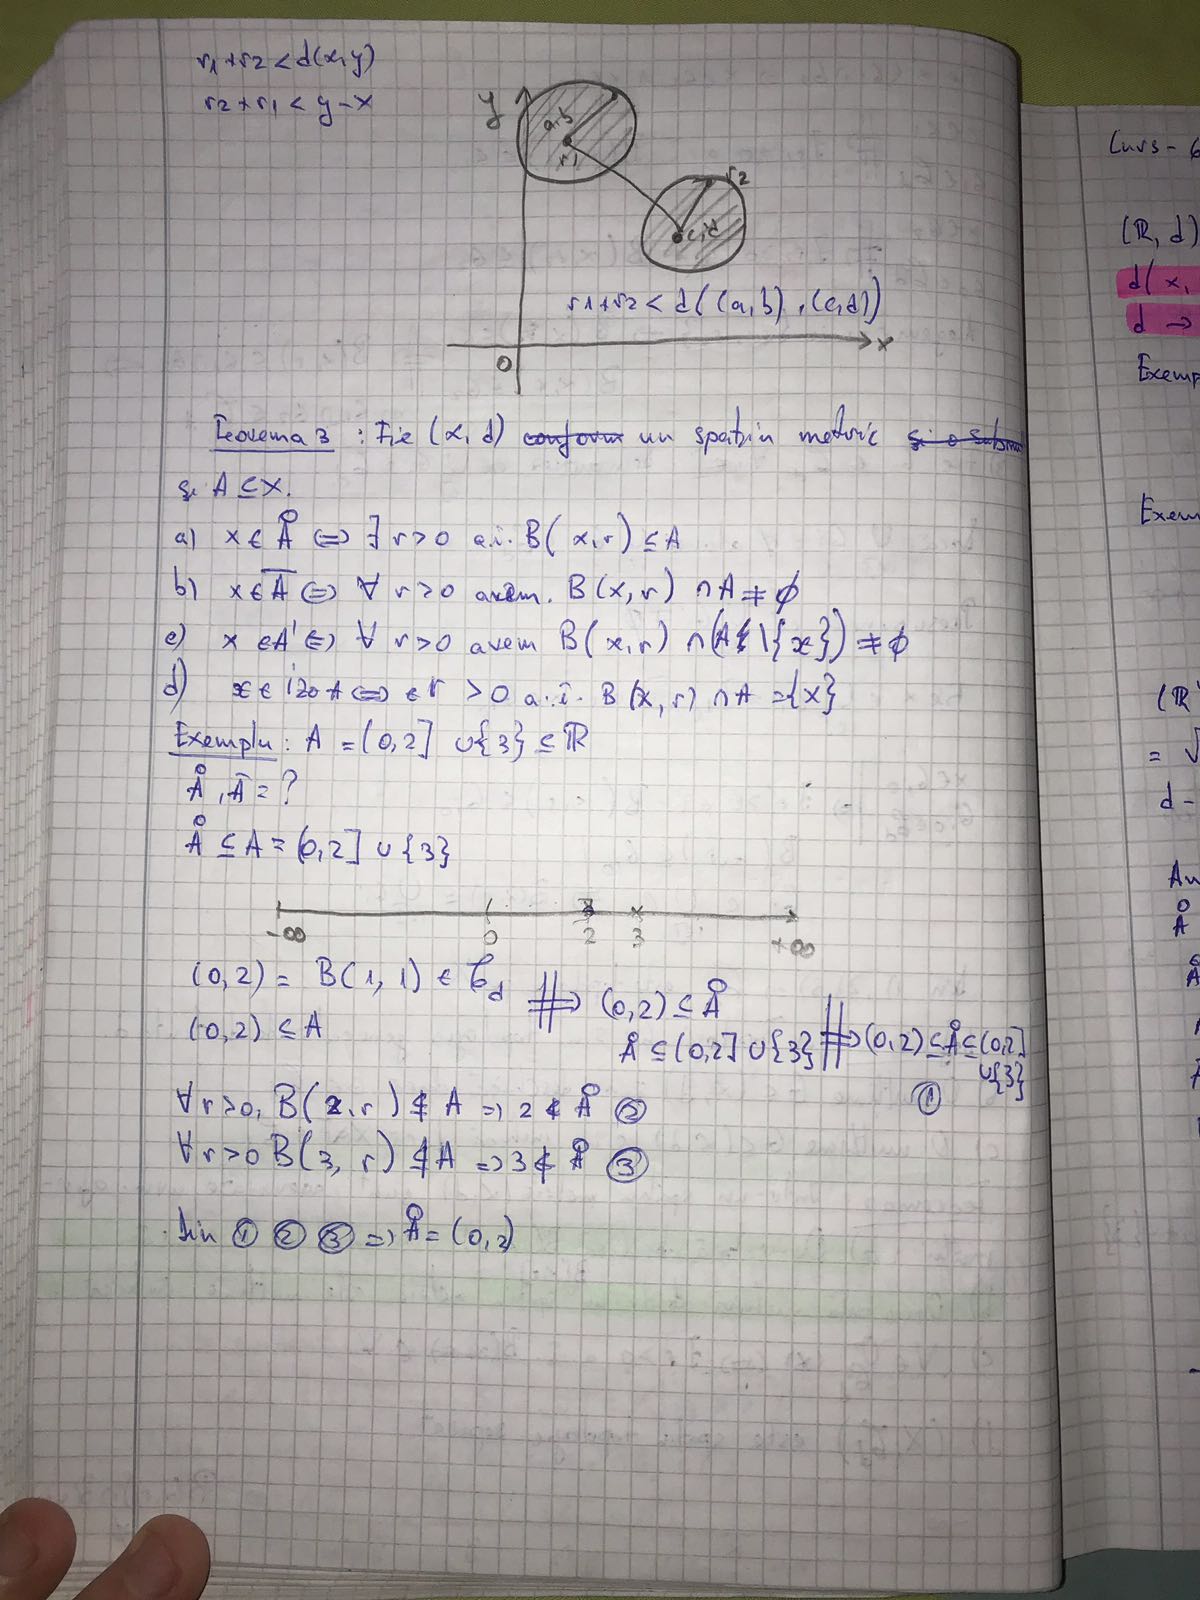 r1+r2 < d(x,y)
r2+r1 < y-x
y
a,b
r1
r2
c,d
r1+r2 < d((a,b),(c,d))
x
0
Teorema 3 : Fie (X, d) conform un spațiu metric și o subm
și A ⊆ X.
a) x ∈ Å ⟺ ∃ r>0 a.î. B(x,r) ⊆ A
b) x ∈ A̅ ⟺ ∀ r>0 avem. B(x,r) ∩ A ≠ ϕ
c) x ∈ A' ⟺ ∀ r>0 avem B(x,r) ∩ (A \ {x}) ≠ ϕ
d) x ∈ izo A ⟺ ∈ r >0 a.î. B(x,r) ∩ A = {x}
Exemplu: A = (0,2] ∪ {3} ⊆ ℝ
Å, A̅ = ?
Å ⊆ A = (0,2] ∪ {3}
-∞ 0 2 3 +∞
(0,2) = B(1,1) ∈ 𝒯d
(0,2) ⊆ A
⟹ (0,2) ⊆ Å
Å ⊆ (0,2] ∪ {3}
⟹ (0,2) ⊆ Å ⊆ (0,2]
∪{3}
①
∀ r>0, B(2,r) ⊄ A => 2 ∉ Å ②
∀ r>0 B(3, r) ⊄ A => 3 ∉ Å ③
Din ① ② ③ => Å = (0,2)
Curs - 6
(ℝ, d)
d(x,
d →
Exemp
Exem
(ℝ
= √
d -
Å